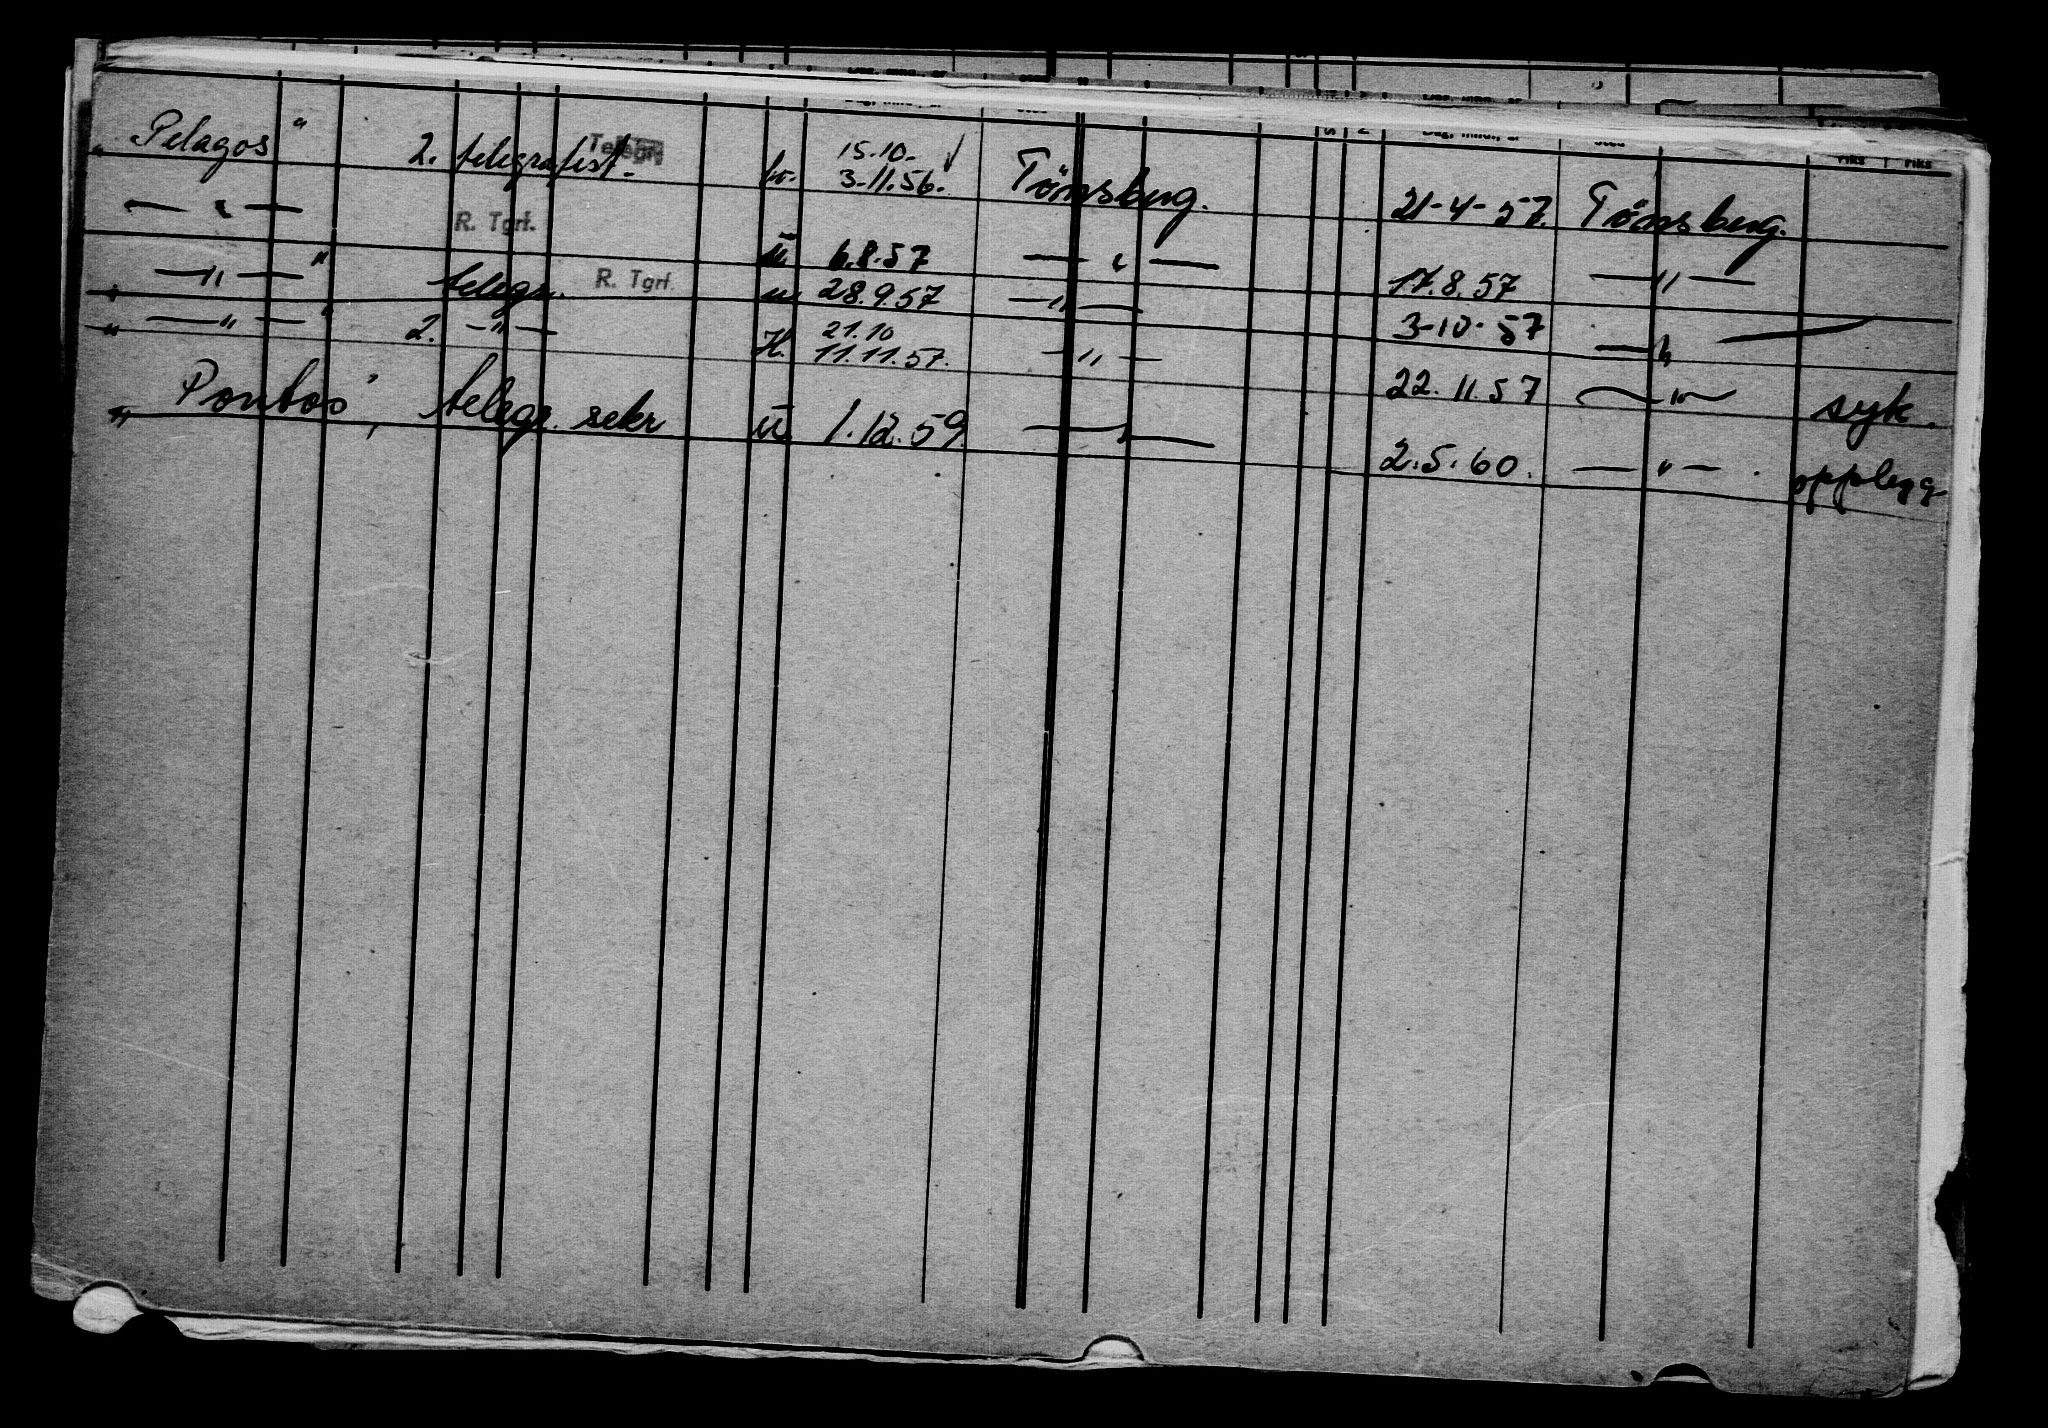 Dag, mnd., år Sted S N Dag, mnd., år Sted riks riks
„Pelagos" 2. telegrafist. Telegr. 15.10.- 3-11.56. Tönsberg. 21-4-57. Tönsberg.
— " — R. Tgrf. u. 6.8.57 — " — 17.8.57 — " —
" — " — " telegr. R. Tgrf. u. 28.9.57 — " — 3-10-57 — " —
" — " — " 2. — " — H. 21.10 11.11.57. — " — 22.11.57 — " — syk.
„Pontos", telegr. sekr u 1.12.59. — " — 2.5.60. — " — . opplegg